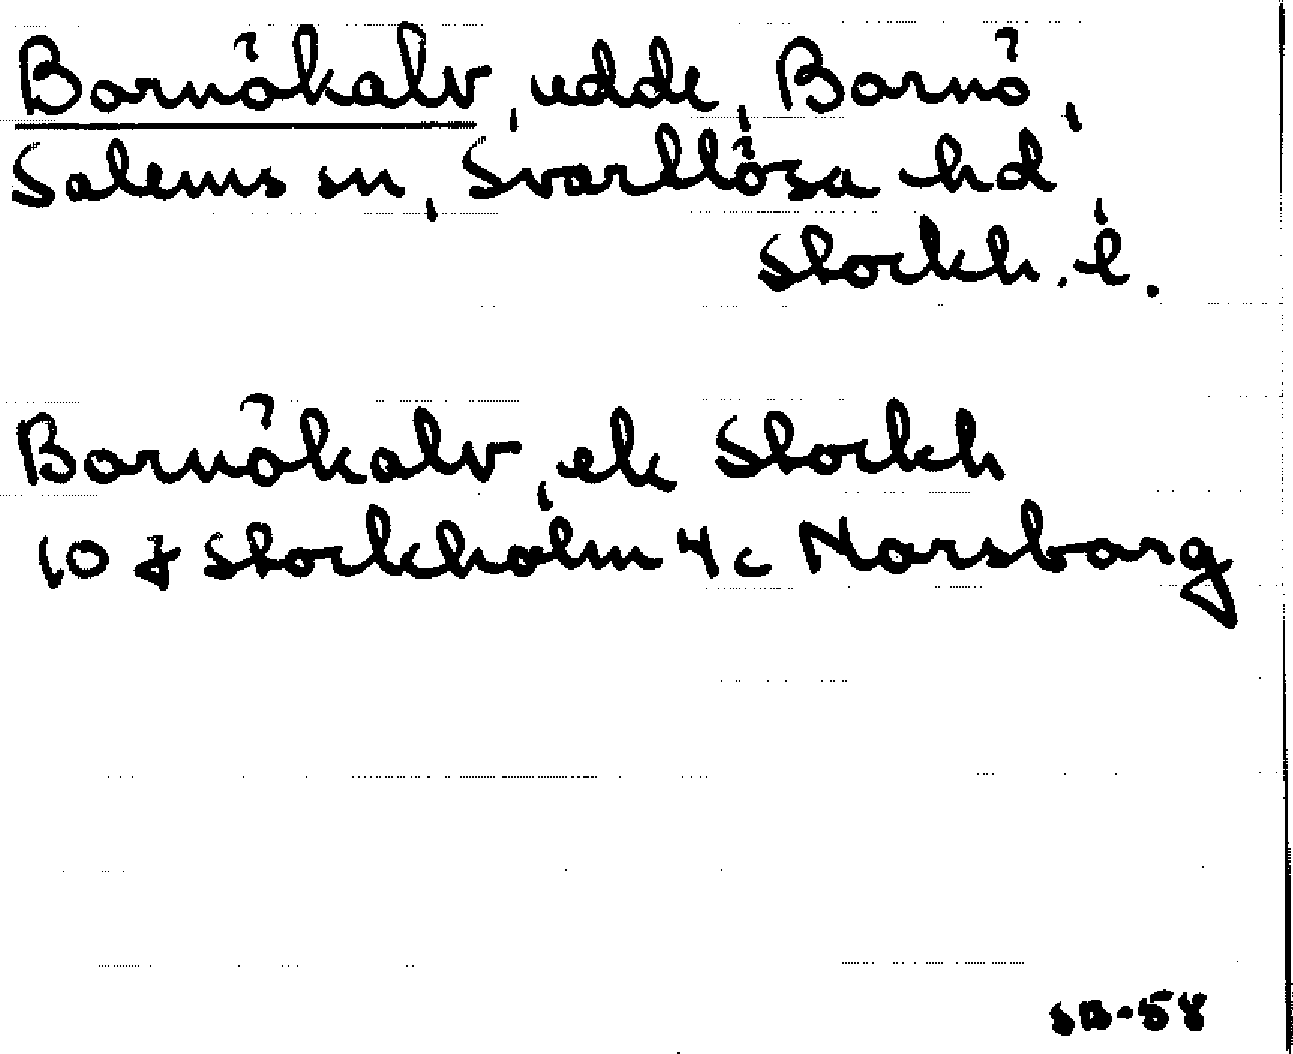 Bornökalv, udde, Bornö,
Salems sn, Svartlösa hd,
Stockh. l.
Bornökalv, ek Stockh
10 f Stockholm 4c Norsborg
SB-58